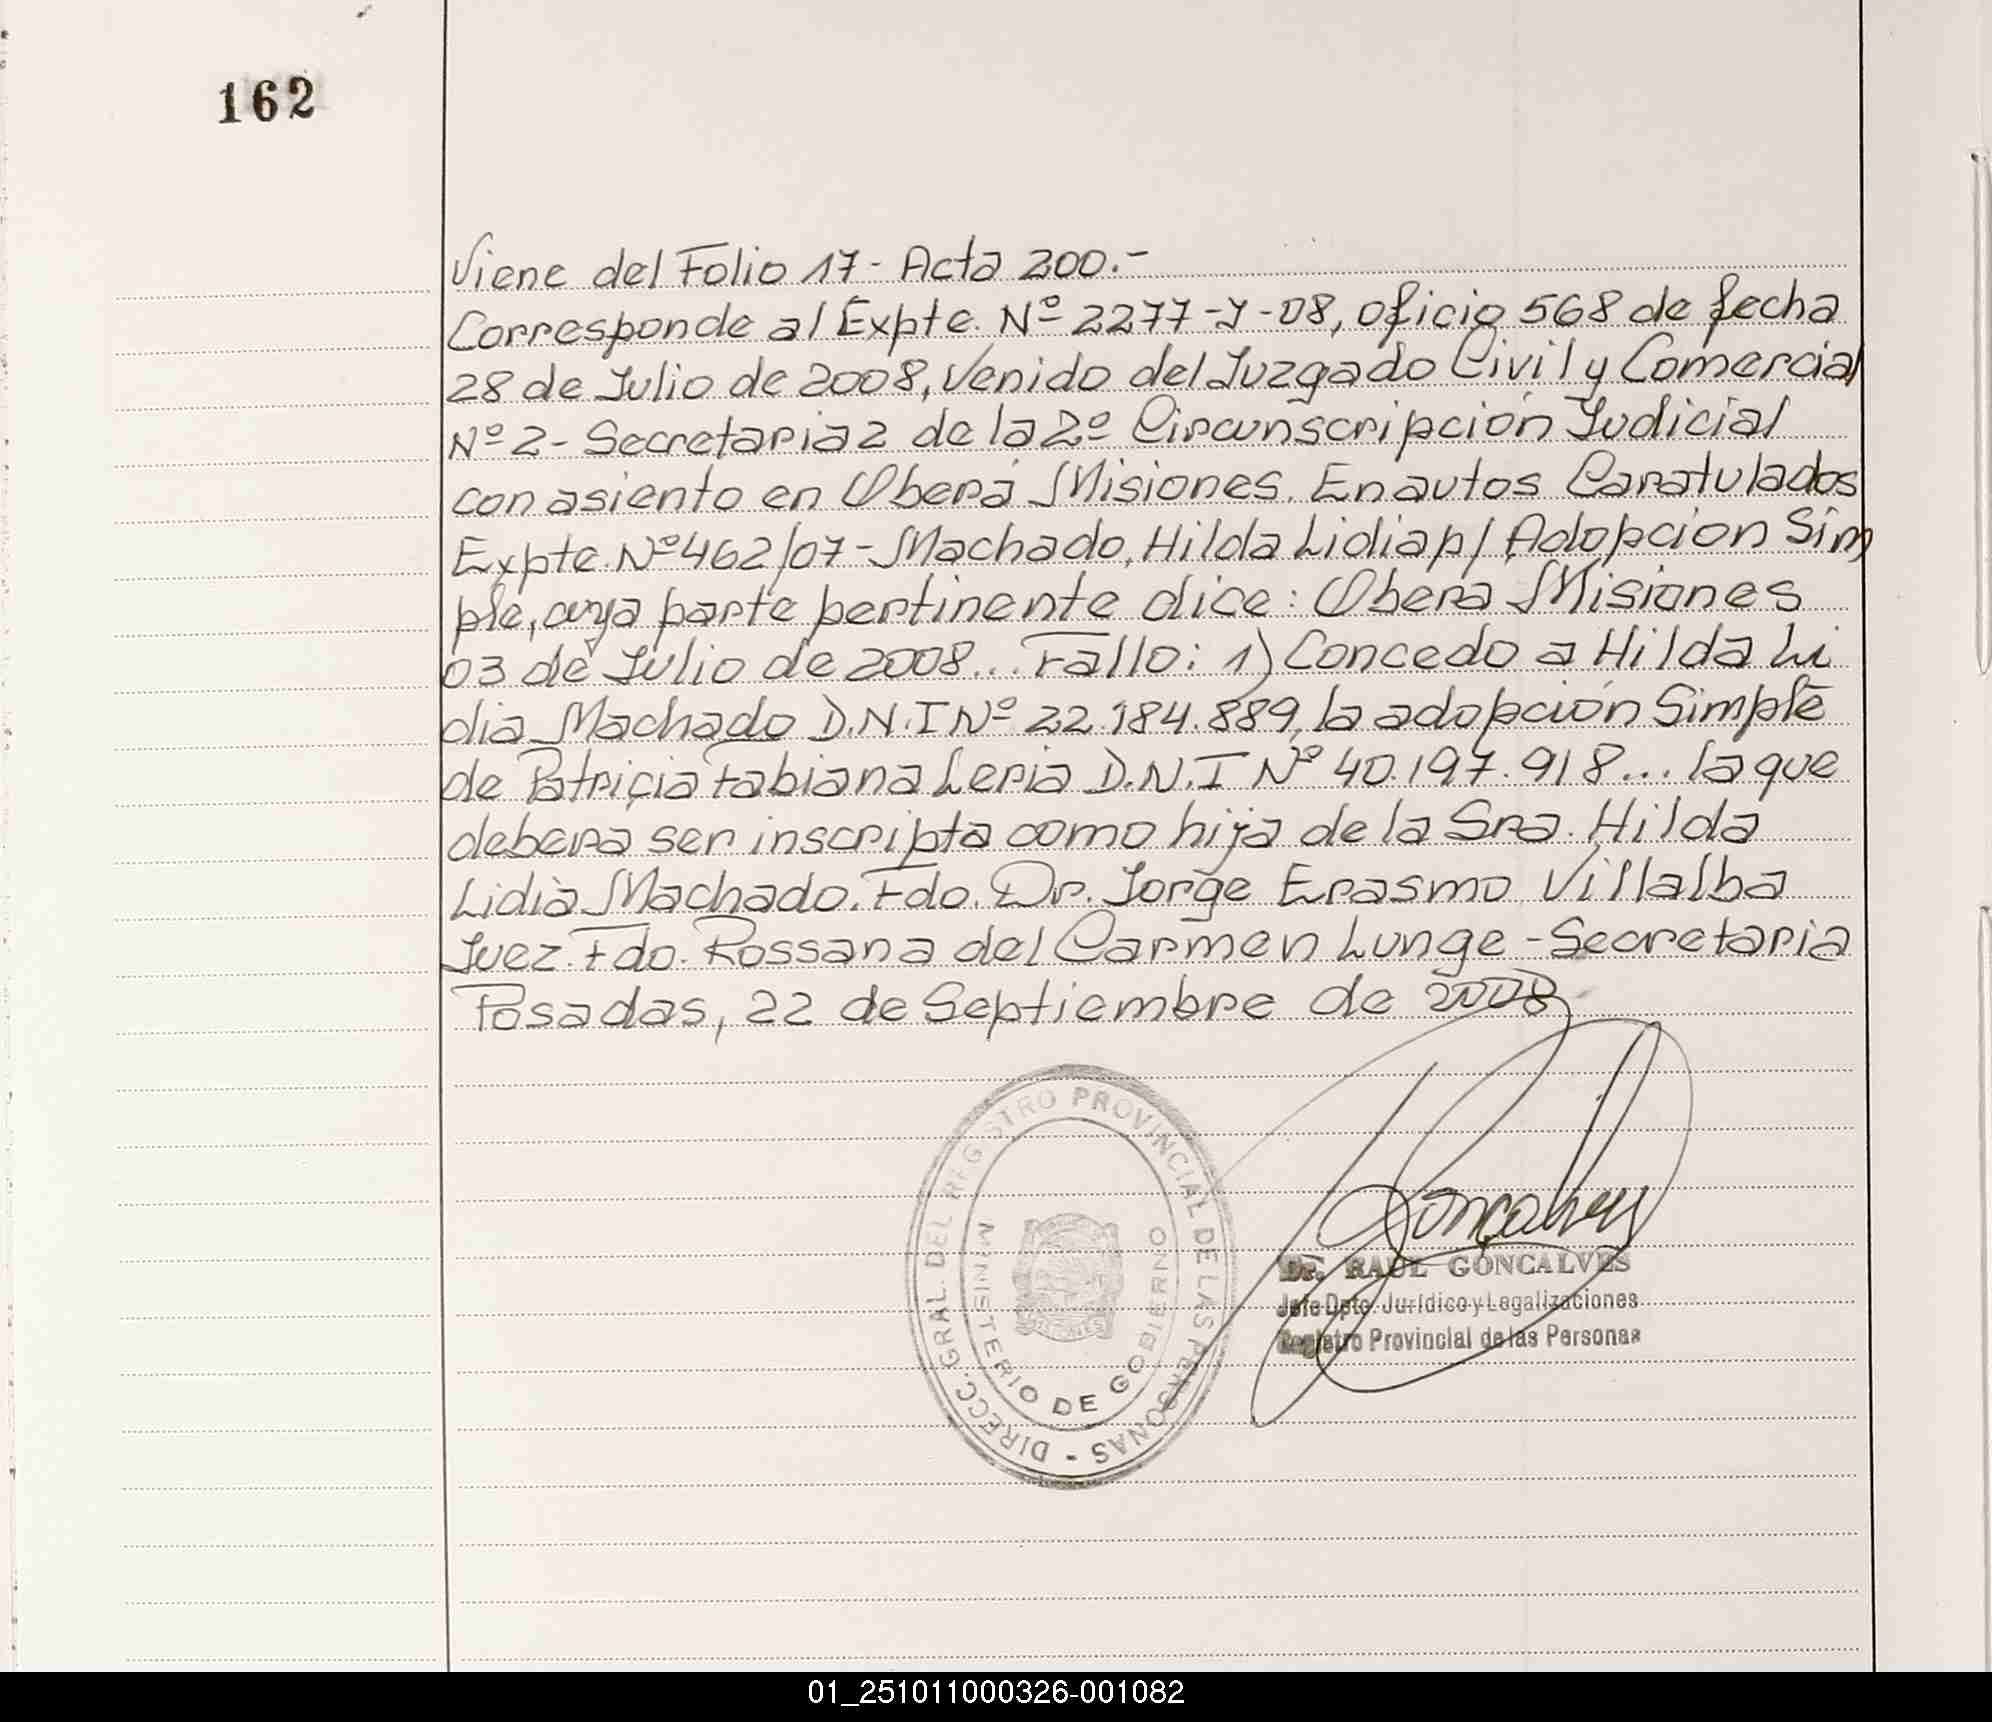 162
Viene del Folio 17 - Acta 200.-
Corresponde al Expte. Nº 2277-J-08, oficio 568 de fecha
28 de Julio de 2008, Venido del Juzgado Civil y Comercial
Nº 2 - Secretaria 2 de la 2º Circunscripción Judicial
con asiento en Oberá Misiones. En autos Caratulados
Expte. Nº 462/07 - Machado, Hilda Lidia p/ Adopcion Sim
ple, cuya parte pertinente dice: Obera Misiones
03 de Julio de 2008... Fallo: 1) Concedo a Hilda Li
dia Machado D.N.I Nº 22.184.889, la adopción Simple
de Patricia Fabiana Leria D.N.I Nº 40.197.918... la que
debera ser inscripta como hija de la Sra. Hilda
Lidia Machado. Fdo. Dr. Jorge Erasmo Villalba
Juez. Fdo. Rossana del Carmen Lunge - Secretaria
Posadas, 22 de Septiembre de 2008
DIRECC. GRAL. DEL REGISTRO PROVINCIAL DE LAS PERSONAS -
MINISTERIO DE GOBIERNO
MISIONES
Goncalves
Dr. RAUL GONCALVES
Jefe Dpto. Jurídico y Legalizaciones
Registro Provincial de las Personas
01_251011000326-001082